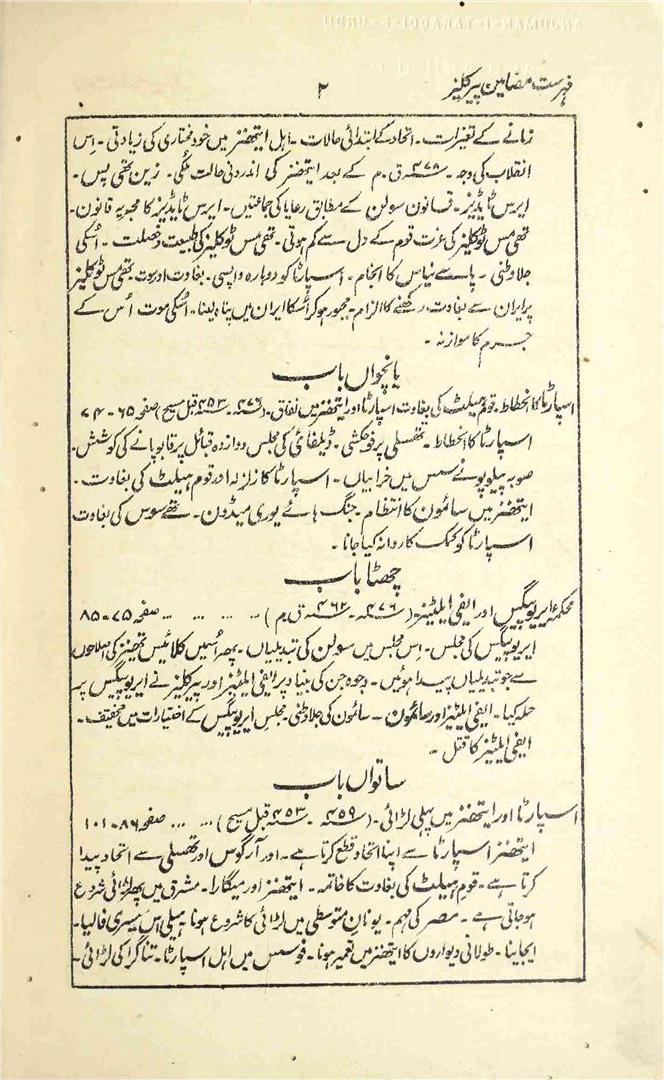 فہرست مضامین پیرکلیز
۲
زمانے کے تغیرات۔ اتحاد کے ابتدائی حالات۔ اہل ایتھنز میں خود مختاری کی زیادتی۔ اِس
انقلاب کی وجہ۔ ۴۷۸ ق۔م کے بعد ایتھنز کی اندرونی حالت ملکی۔ زین تھی پس۔
ایرس ٹایڈیز۔ قانون سولن کے مطابق رعایا کی جماعتیں۔ ایرس ٹایڈیز کا مجوبہ قانون۔
تھی مس ٹوکلیز کی عزت قوم کے دل سے کم ہوتی۔ تھی مس ٹوکلیز کی طبیعت و خصلت۔ اُسکی
جلاوطنی۔ پاسے نیاس کا انجام۔ اسپارٹا کو دوبارہ واپسی۔ بغاوت اور موت۔ تھی مس ٹوکلیز
پر ایران سے بغاوت رکھنے کا الزام۔ مجبور ہوکر اُسکا ایران میں پناہ لینا۔ اُسکی موت اُس کے
جرم کا موازنہ۔
پانچواں باب
اسپارٹا کا انحطاط۔ قوم ہیلٹ کی بغاوت اسپارٹا اور ایتھنز میں نفاق۔ (۴۷۶۔ ۴۵۳ قبل مسیح) صفحہ ۶۵۔ ۷۴
اسپارٹا کا انحطاط۔ تھسلی پر فوجکشی۔ ڈیلفائی کی مجلس دوازدہ قبائل پر قابو پانے کی کوشش۔
صوبہ پیلوپونے سس میں خرابیاں۔ اسپارٹا کا زلزلہ اور قوم ہیلٹ کی بغاوت۔
ایتھنز میں سائمون کا انتظام۔ جنگ ہائے یوری میڈون۔ تھے سوس کی بغاوت
اسپارٹا کو کمک کا روانہ کیا جانا۔
چھٹا باب
محکمۂ ایریوپیگیس اور ایفی ایلٹیز۔ (۴۷۶۔ ۴۶۲ ق۔م) ... ... ... ... صفحہ ۷۵۔۸۵
ایریوپیگیس کی مجلس۔ اِس مجلس میں سولن کی تبدیلیاں۔ پھر اُسمیں کلائیس تھینز کی اصلاحوں
سے جو تبدیلیاں پیدا ہوئیں۔ وجوہ جن کی بنیاد پر ایفی ایلٹیز اور پیرکلیز نے ایریوپیگیس پر
حملہ کیا۔ ایفی ایلٹیز اور سائمون۔ سائمون کی جلاوطنی۔ مجلس ایریوپیگیس کے اختیارات میں تخفیف۔
ایفی ایلٹیز کا قتل۔
ساتواں باب
اسپارٹا اور ایتھنز میں پہلی لڑائی۔ (۴۵۹۔ ۴۵۳ قبل مسیح) ... ... صفحہ ۸۶۔۱۰۱
ایتھنز اسپارٹا سے اپنا اتحاد قطع کرتا ہے۔ اور آرگوس اور تھسلی سے اتحاد پیدا
کرتا ہے۔ قوم ہیلٹ کی بغاوت کا خاتمہ۔ ایتھنز اور میگارا۔ مشرق میں پھر لڑائی شروع
ہوجاتی ہے۔ مصر کی مہم۔ یونان متوسطی میں لڑائی کا شروع ہونا۔ ہیلی اس سیسری فالیا۔
ایجاینا۔ طولانی دیواروں کا ایتھنز میں تعمیر ہونا۔ فوسس میں اہل اسپارٹا۔ تناگرا کی لڑائی۔